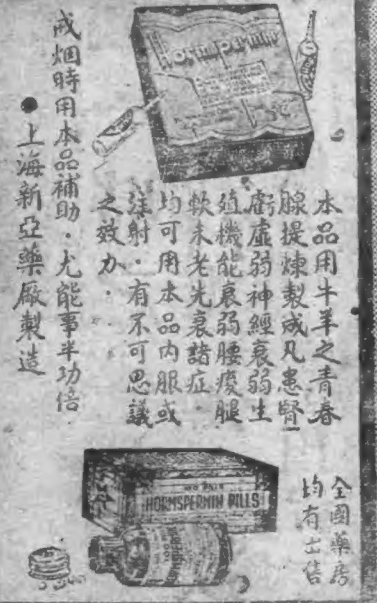 Hormspermin
本品用牛羊之青春
腺提煉製成凡患腎
虧虛弱神經衰弱生
殖機能衰弱腰痠腿
軟未老先衰諸症．
均可用本品內服或
注射．有不可思議
之效力．
戒烟時用本品補助．尤能事半功倍．
●上海新亞藥廠製造
全國藥房
均有出售
HORMSPERMIN PILLS